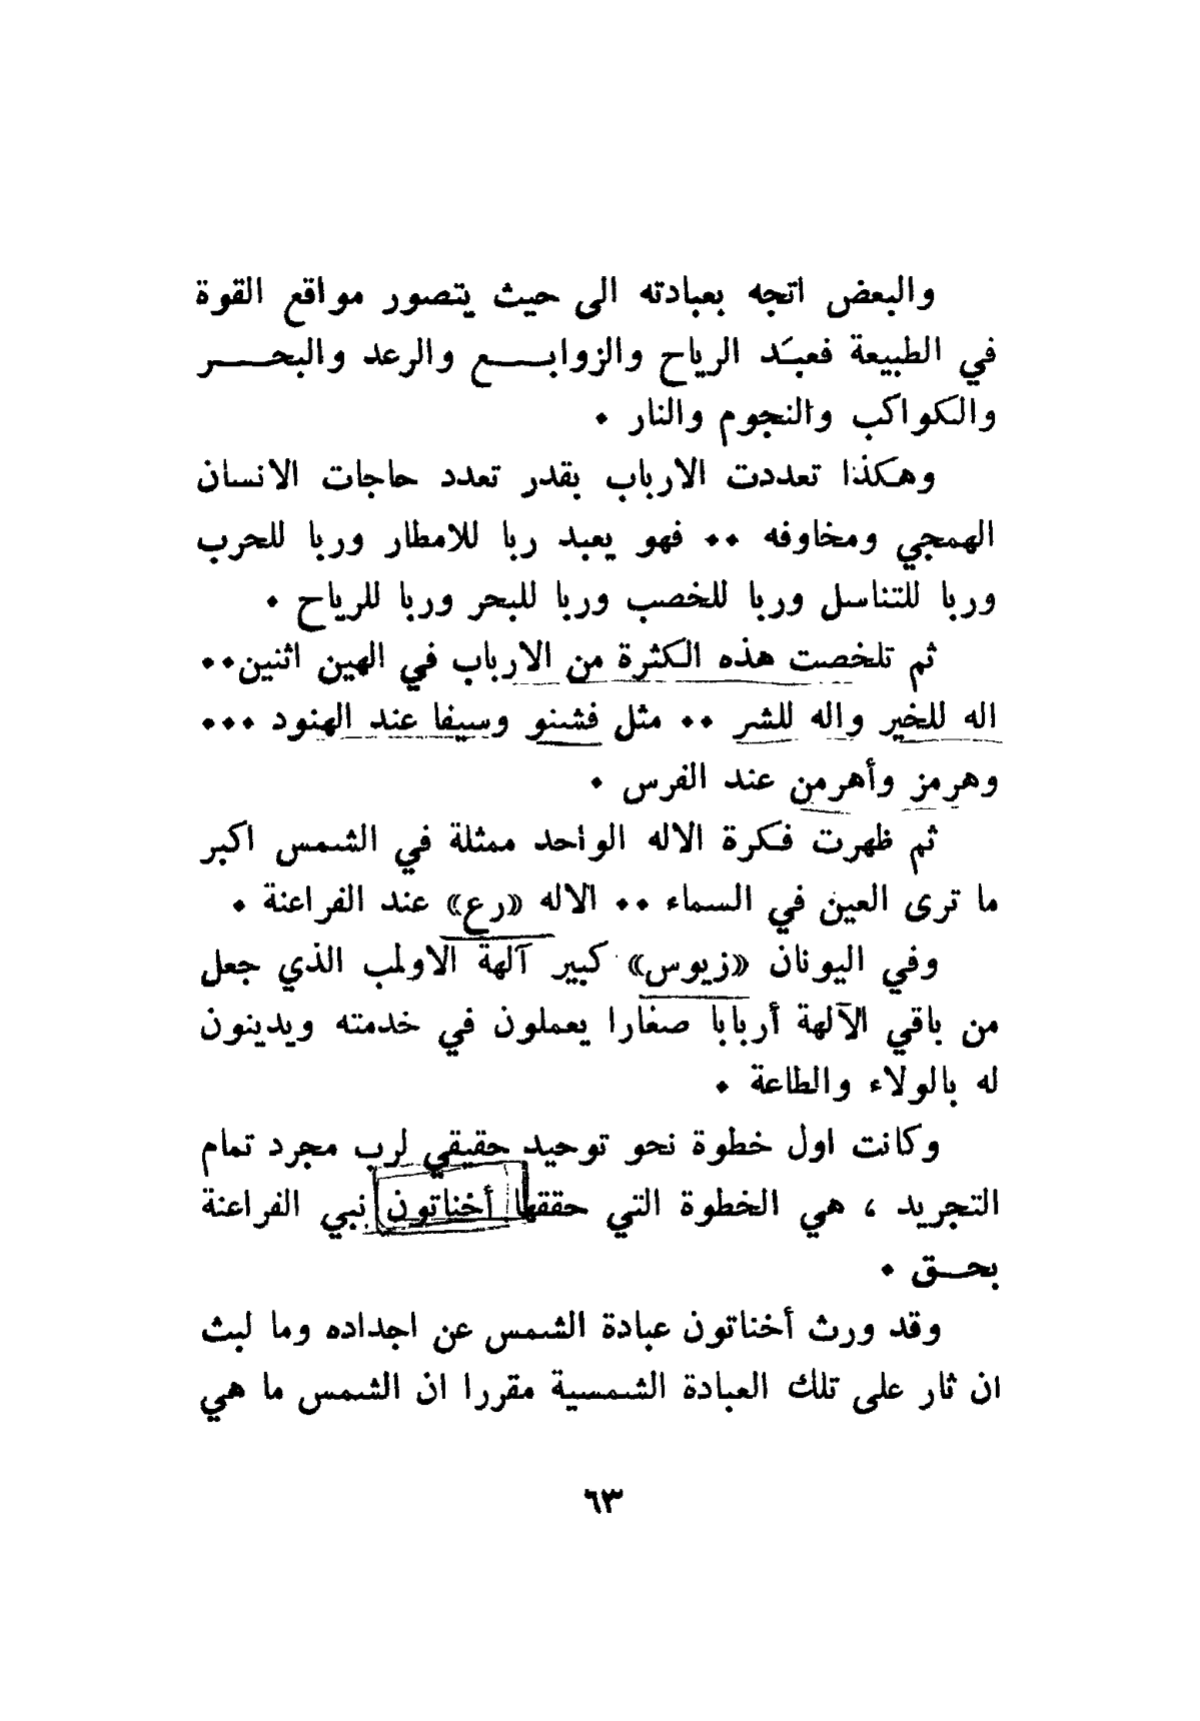 والبعض اتجه بعبادته الى حيث يتصور مواقع القوة
في الطبيعة فعبَد الرياح والزوابـــع والرعد والبحـــر
والكواكب والنجوم والنار .
وهكذا تعددت الارباب بقدر تعدد حاجات الانسان
الهمجي ومخاوفه .. فهو يعبد ربا للامطار وربا للحرب
وربا للتناسل وربا للخصب وربا للبحر وربا للرياح .
ثم تلخصت هذه الكثرة من الارباب في الهين اثنين..
اله للخير واله للشر .. مثل فشنو وسيفا عند الهنود ...
وهرمز وأهرمن عند الفرس .
ثم ظهرت فكرة الاله الواحد ممثلة في الشمس اكبر
ما ترى العين في السماء .. الاله «رع» عند الفراعنة .
وفي اليونان «زيوس» كبير آلهة الاولمب الذي جعل
من باقي الآلهة أربابا صغارا يعملون في خدمته ويدينون
له بالولاء والطاعة .
وكانت اول خطوة نحو توحيد حقيقي لرب مجرد تمام
التجريد ، هي الخطوة التي حققها أخناتون نبي الفراعنة
بحــق .
وقد ورث أخناتون عبادة الشمس عن اجداده وما لبث
ان ثار على تلك العبادة الشمسية مقررا ان الشمس ما هي
٦٣